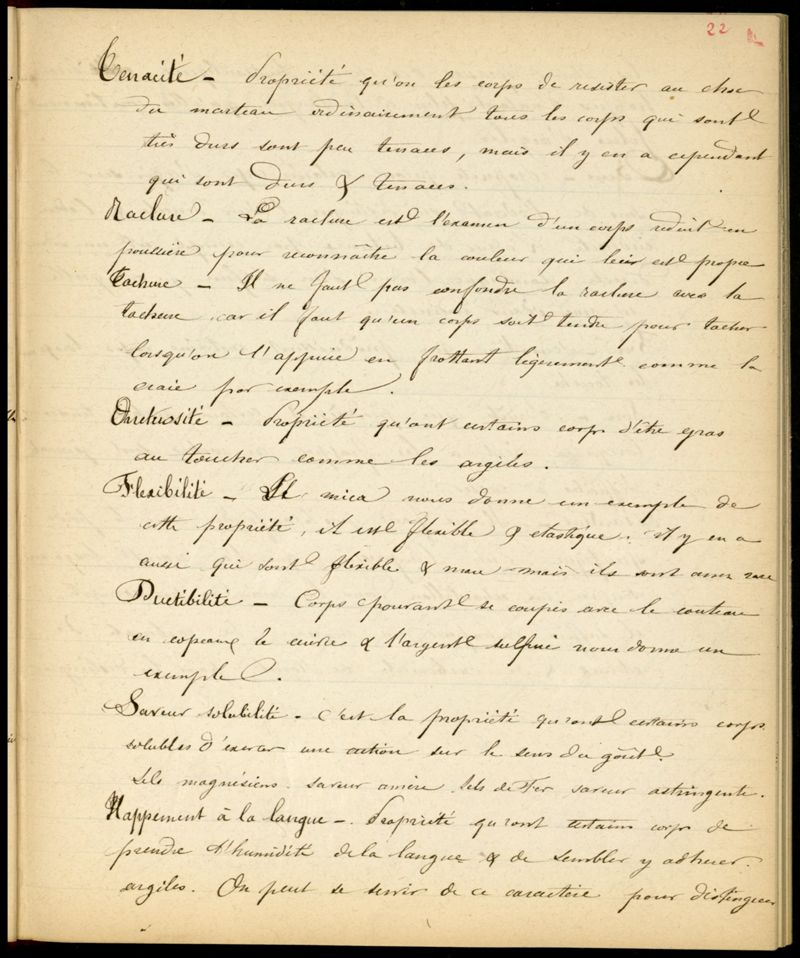 22
Tenacité - Propriété qu'on les corps de resister au choc
du marteau ordinairement tous les corps qui sont
très durs sont peu tenaces, mais il y en a cependant
qui sont Durs & tenaces.
Raclure - La raclure est l'examen d'un corps reduit en
poussière pour reconnaître la couleur qui leur est propre
Tachure - Il ne faut pas confondre la raclure avec la
tachure car il faut qu'un corps soit tendre pour tacher
lorsqu'on l'appuie en frottant ligerement comme la
craie par exemple.
Onctuosité - Propriété qu'ont certains corps d'être gras
au toucher comme les argiles.
Flexibilité - Le mica nous donne un exemple de
cette propriété, il est flexible & elastique. il y en a
aussi qui sont flexible & mou mais ils sont assez rare
Ductibilité - Corps pouvant se coupés avec le couteau
en copeaux le cuivre & l'argent sulfuré nous donne un
exemple.
Saveur solubilité - c'est la propriété qu'ont certains corps
solubles d'exercer une action sur le sens du goût.
Sels magnésiens saveur amère Sels de Fer saveur astringente.
Happement à la langue - Propriété qu'ont certains corps de
prendre l'humidité de la langue & de sembler y adherer.
argiles. On peut se servir de ce caractère pour distinguer